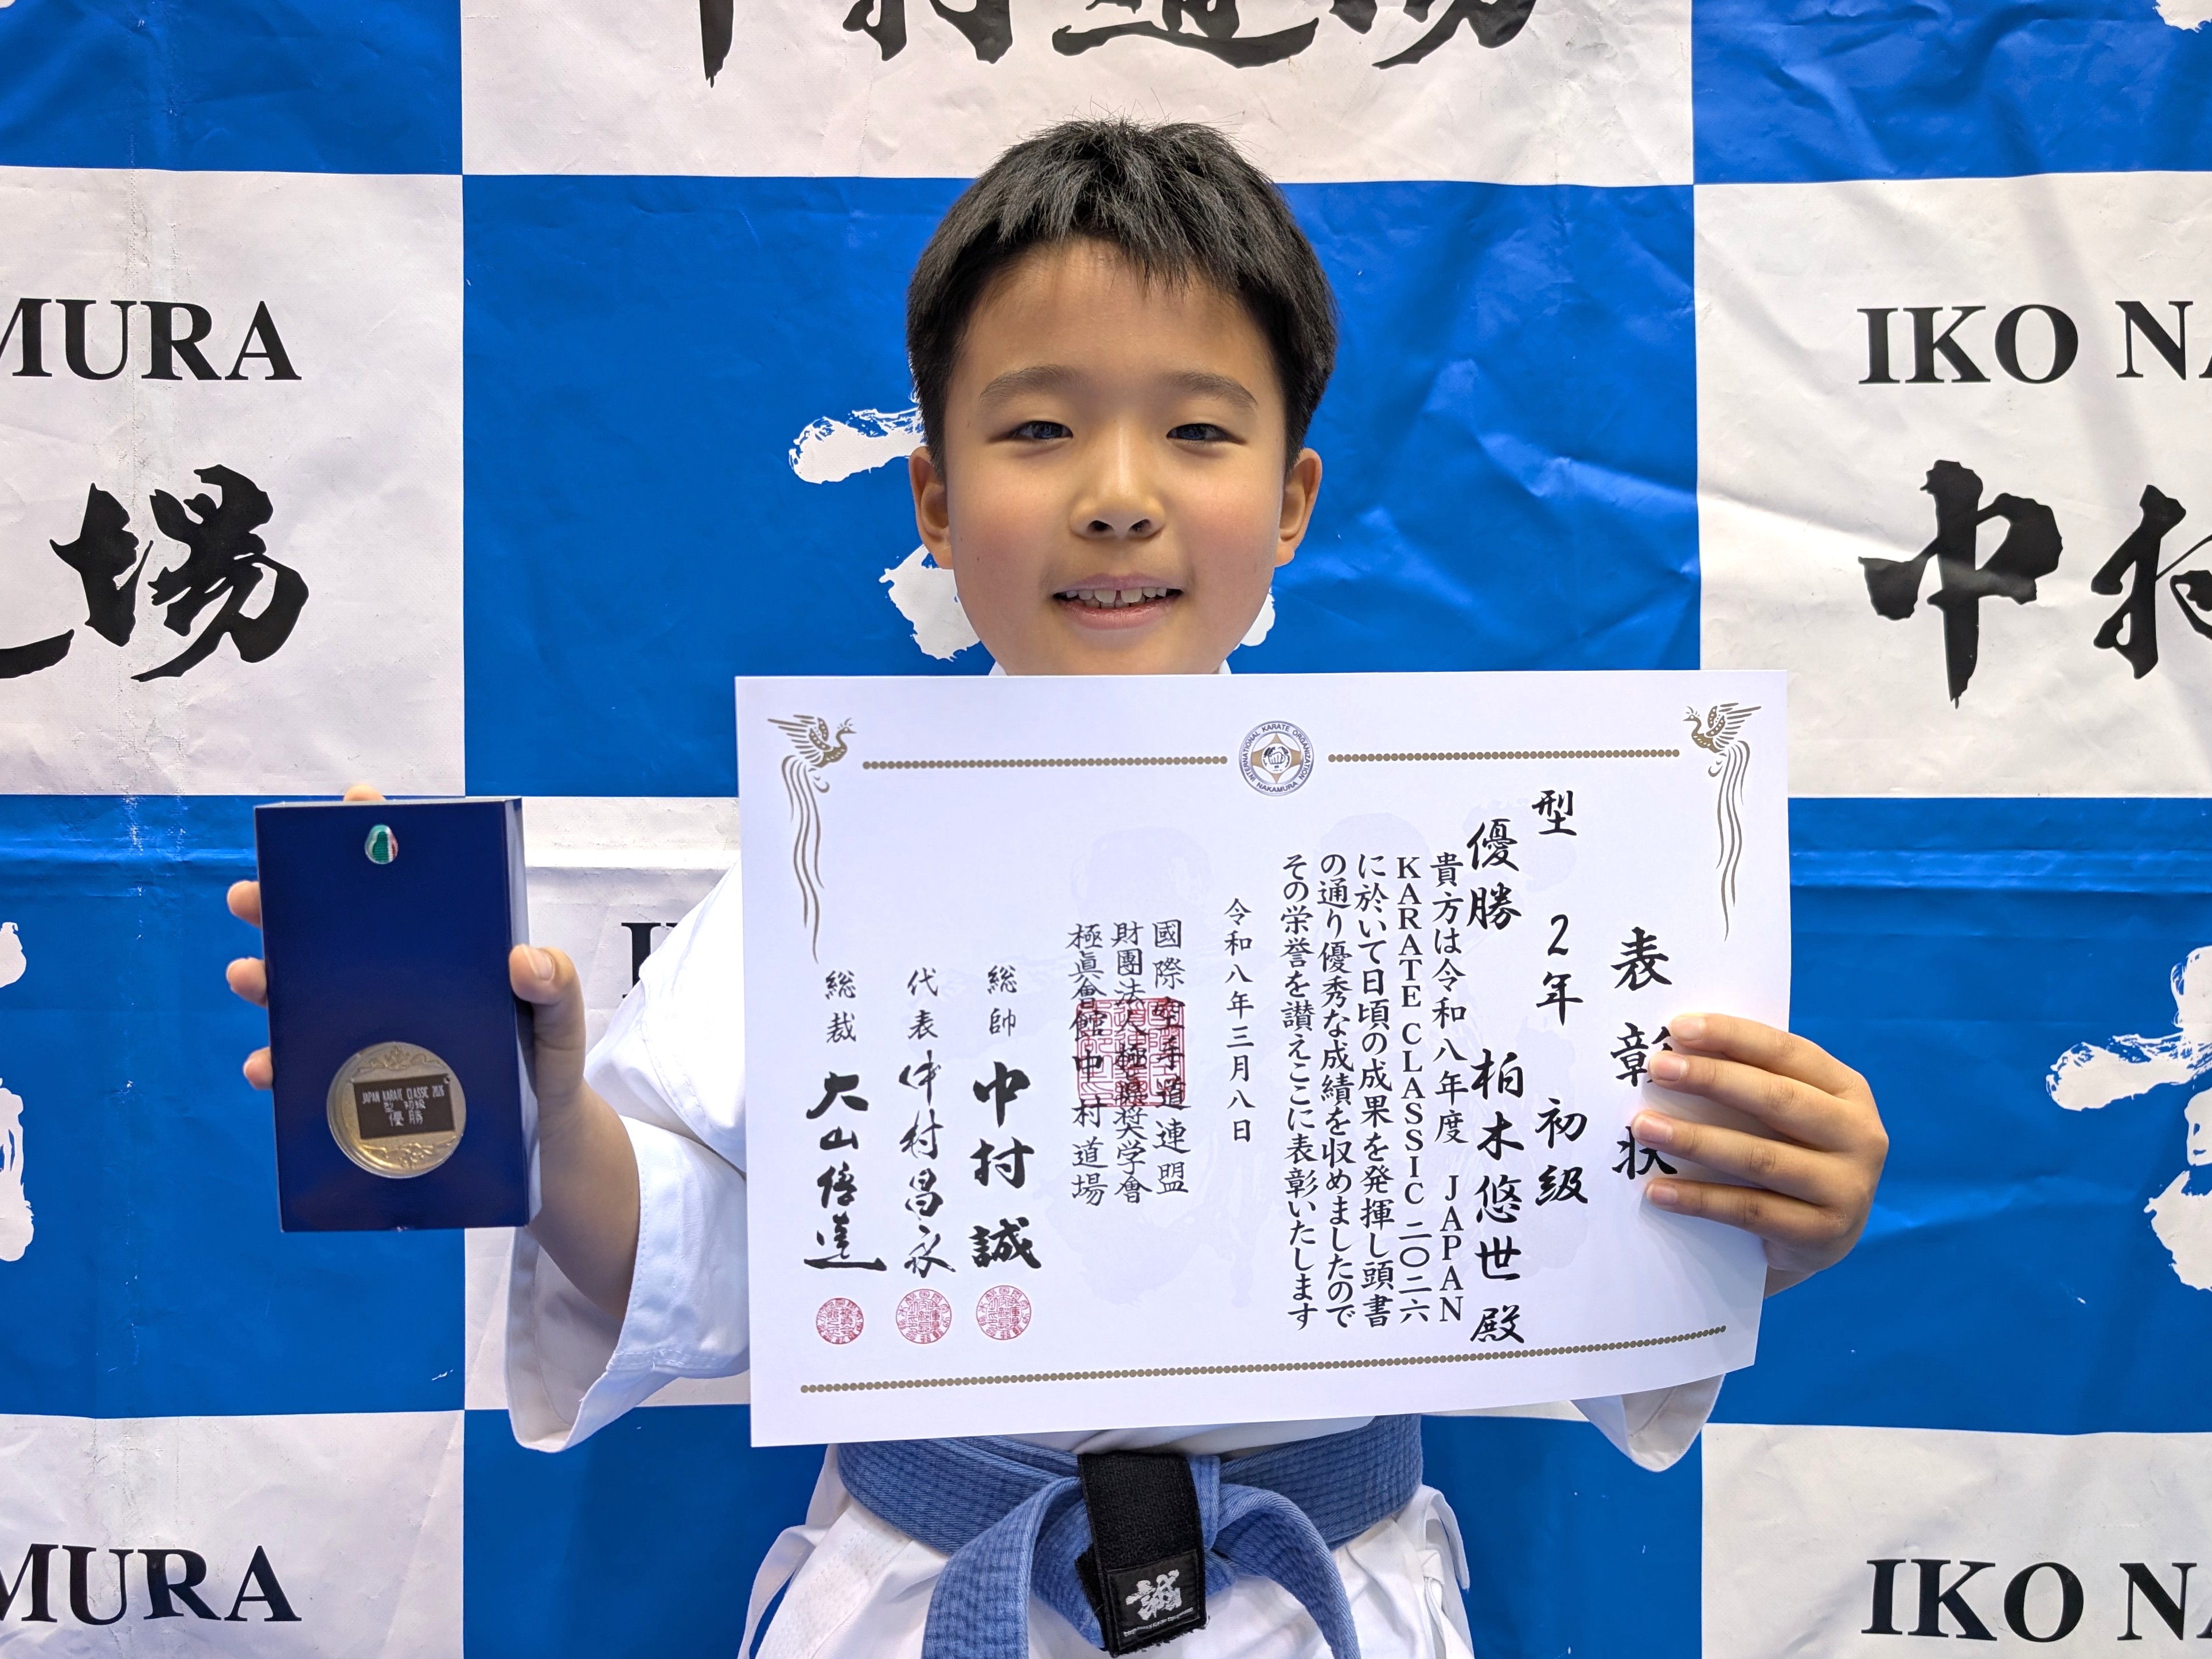 中村道場
MURA
IKO NA
場
中村
INTERNATIONAL KARATE ORGANIZATION
NAKAMURA
表彰状
型 2年 初級
優勝 柏木悠世 殿
貴方は令和八年度 JAPAN
KARATE CLASSIC 二〇二六
に於いて日頃の成果を発揮し頭書
の通り優秀な成績を収めましたので
その栄誉を讃えここに表彰いたします
令和八年三月八日
國際空手道連盟
財團法人極真奨学會
極眞會館中村道場
総帥 中村 誠
代表 中村昌永
総裁 大山倍達
JAPAN KARATE CLASSIC 2026
型 初級
優勝
誠
MURA
IKO NA